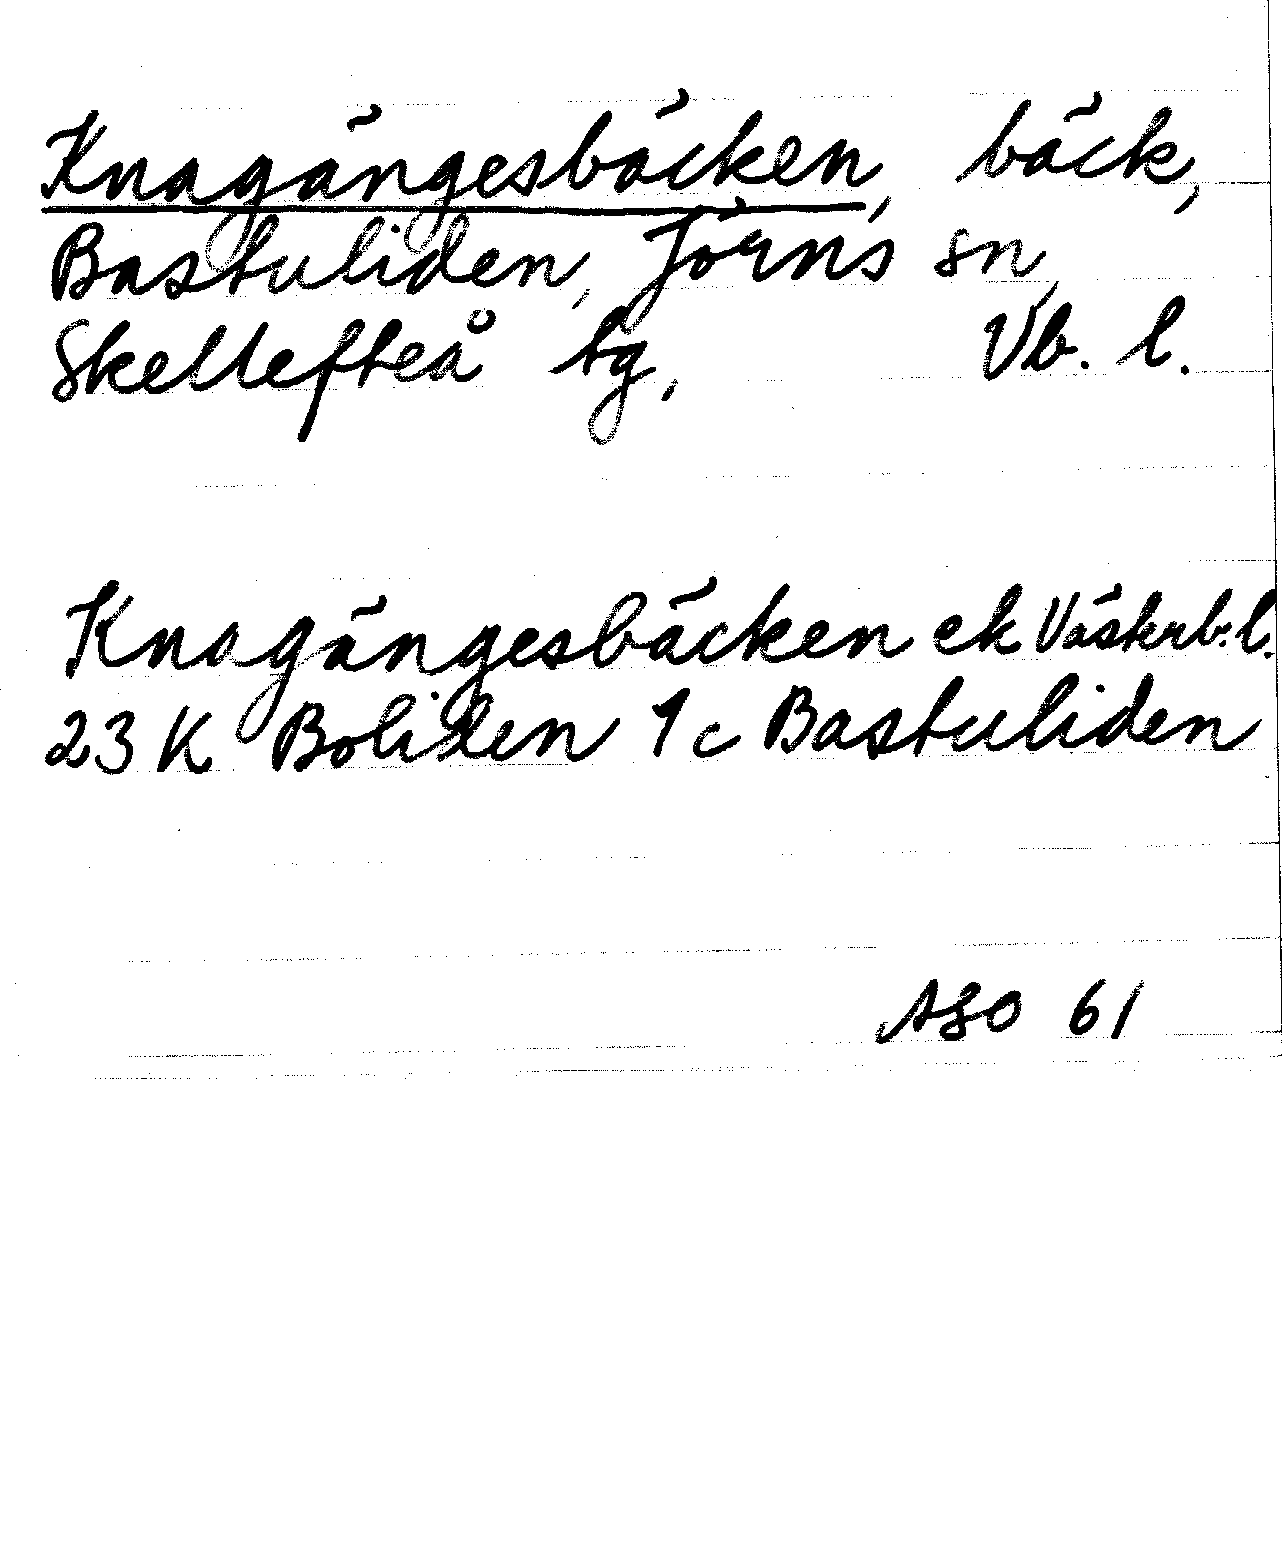 Knagängesbäcken, bäck,
Bastuliden, Jörns sn,
Skellefteå tg, Vb. l.
Knagängesbäcken ek Västerb. l.
23 K Boliden 1 c Bastuliden
ASO 61